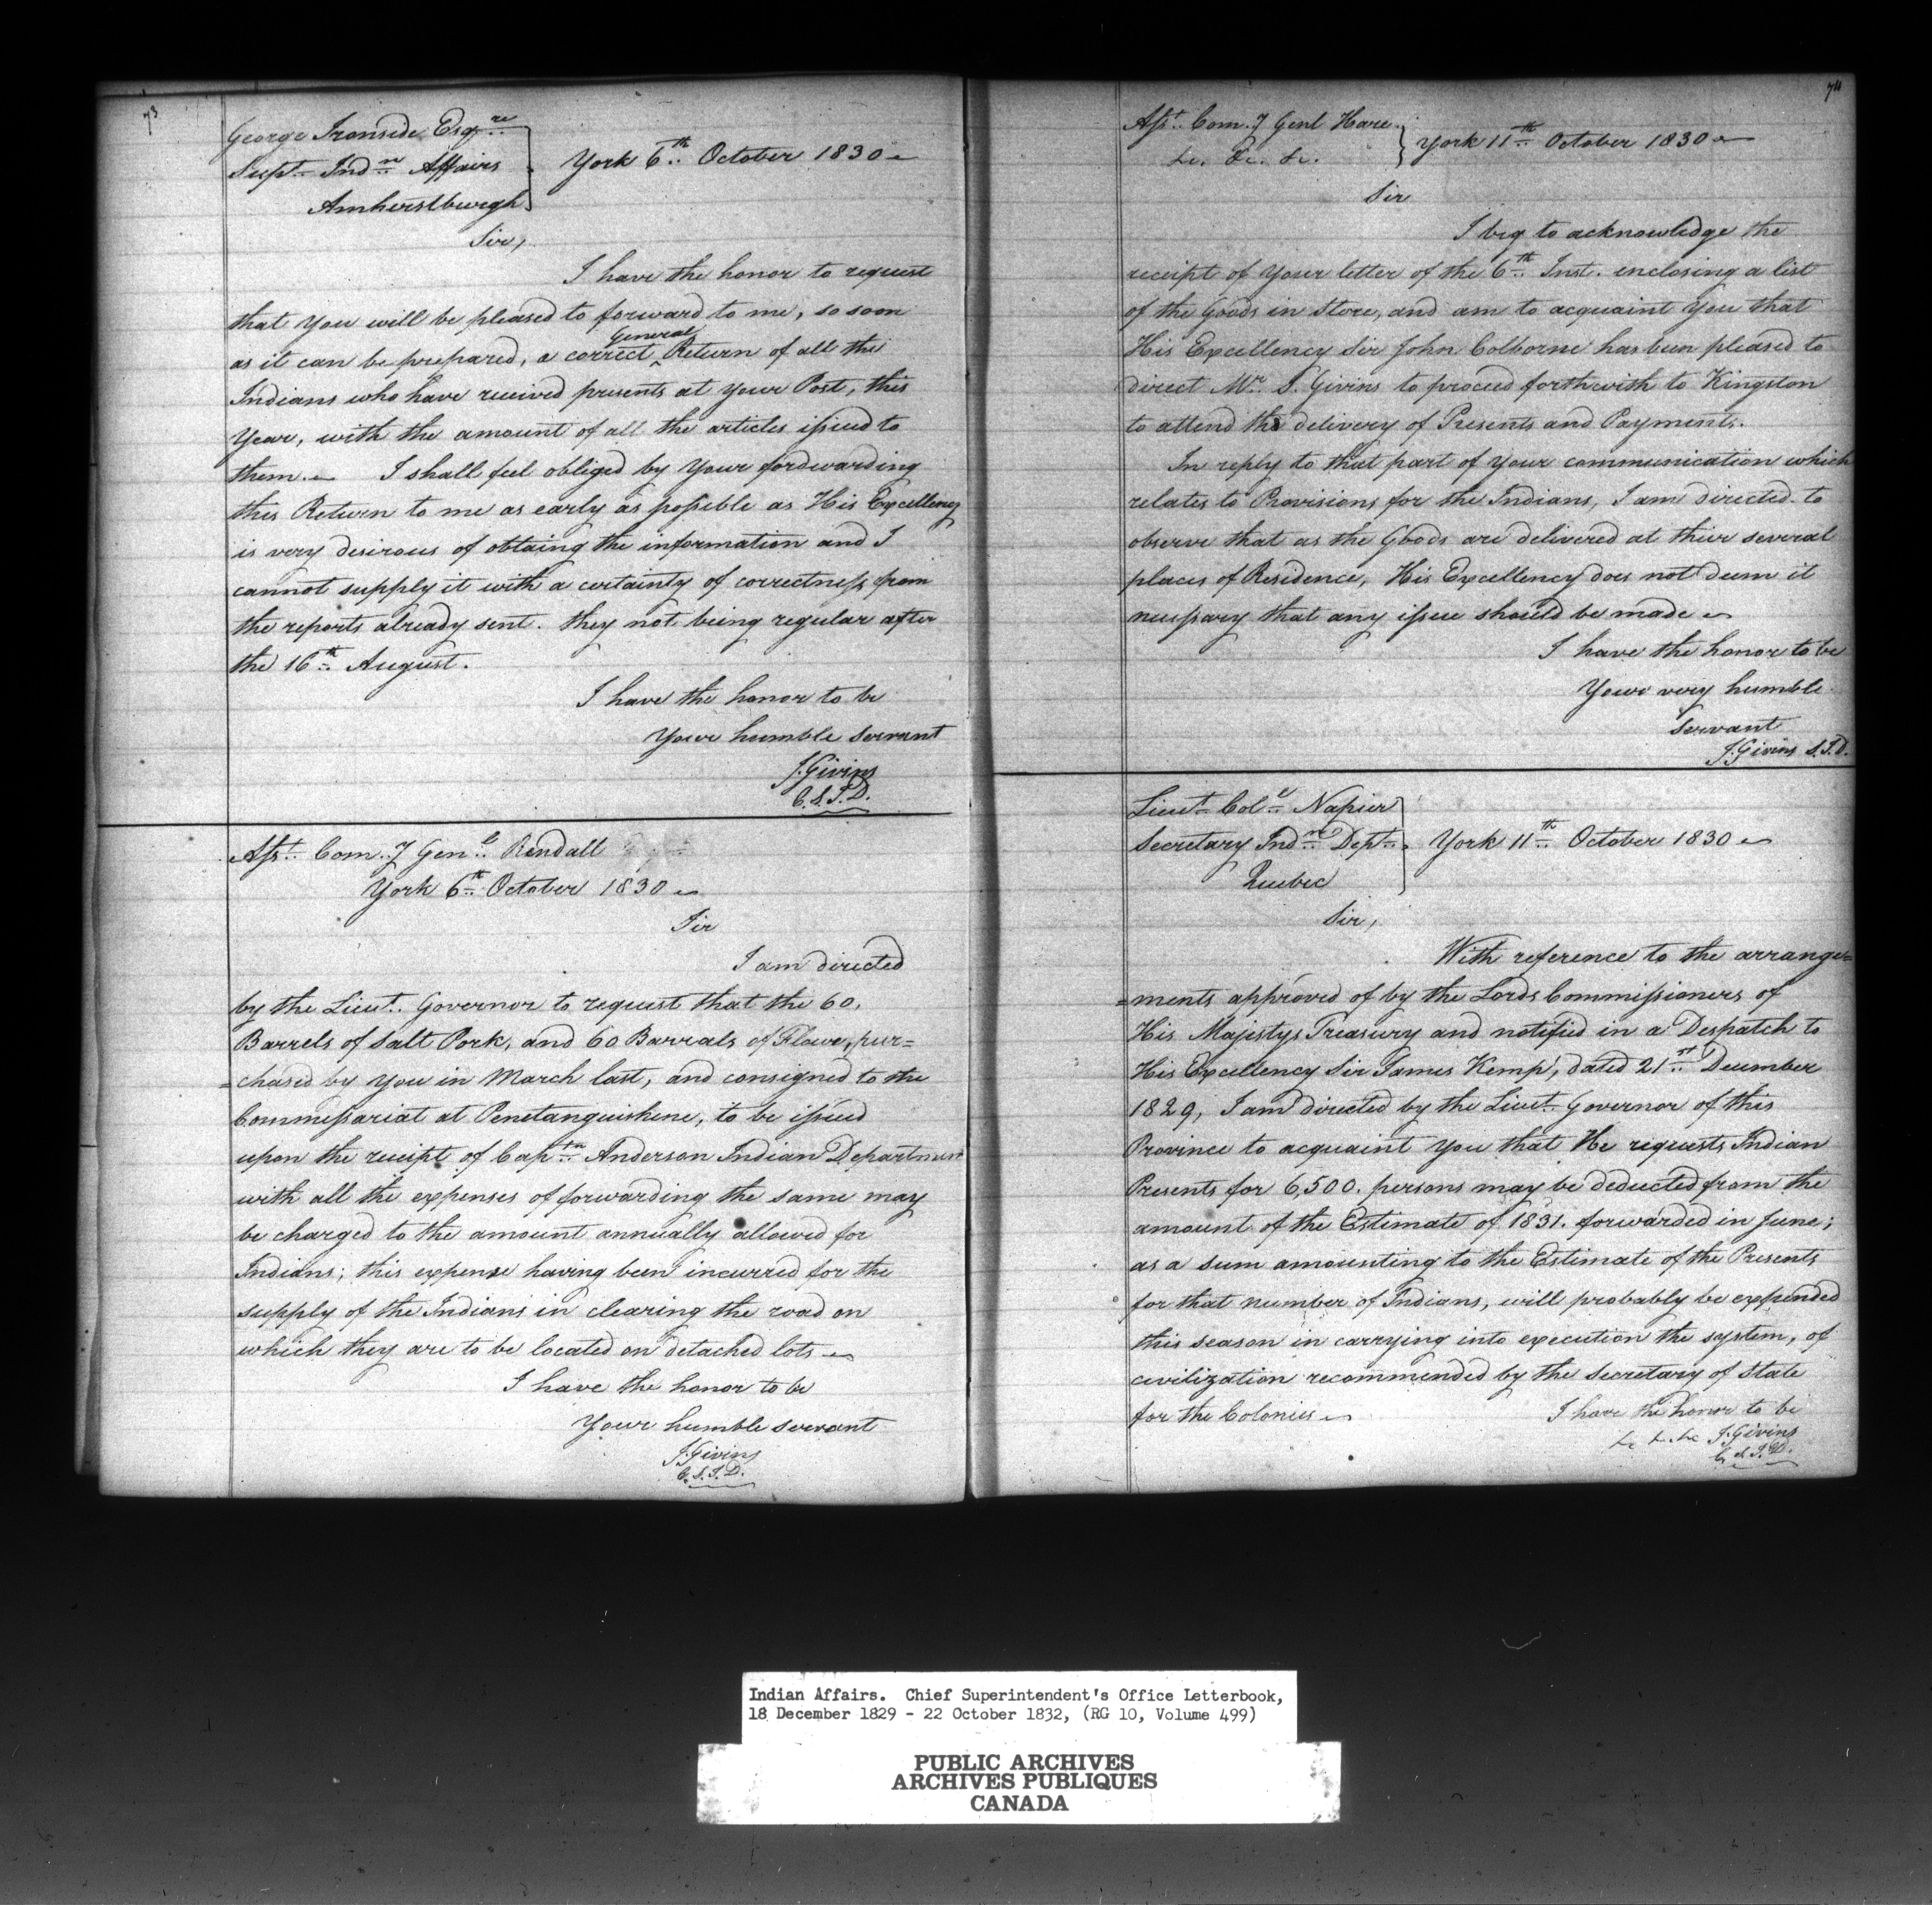 73
George Ironside Esqre
Supt Indn Affairs
Amherstburgh
York 6th October 1830
Sir,
I have the honor to request
that you will be pleased to forward to me, so soon
as it can be prepared, a correct General Return of all the
Indians who have received presents at your Post, this
Year, with the amount of all the articles issued to
them. I shall feel obliged by your fordwarding
this Return to me as early as possible as His Excellency
is very desirous of obtaing the information and I
cannot supply it with a certainty of correctness from
the reports already sent. they not being regular after
the 16th August.
I have the honor to be
Your humble servant
J. Givins
C.S.I.D.
Asst. Comy Genl Rendall
York 6th October 1830
Sir
I am directed
by the Lieut. Governor to request that the 60.
Barrels of Salt Pork, and 60 Barrals of Flower, pur=
=chased by you in March last, and consigned to the
Commissariat at Penetanguishene, to be issued
upon the receipt of Captn Anderson Indian Department
with all the expenses of forwarding the same may
be charged to the amount annually allowed for
Indians; this expense having been incurred for the
supply of the Indians in clearing the road on
which they are to be located on detached lots
I have the honor to be
Your humble servant
J. Givins
C.S.I.D.
74
Asst. Comy Genl Hare
&c. &c. &c.
York 11th October 1830
Sir
I beg to acknowledge the
receipt of your letter of the 6th Inst. enclosing a list
of the Goods in Store, and am to acquaint you that
His Excellency Sir John Colborne has been pleased to
direct Mr. S. Givins to proceed forthwith to Kingston
to attend the delivery of Presents and Payments.
In reply to that part of your communication which
relates to Provisions for the Indians, I am directed to
observe that as the Goods are delivered at their several
places of Residence, His Excellency does not deem it
necessary that any issue should be made
I have the honor to be
Your very humble
Servant
J. Givins S.I.D.
Lieut Coll Napier
Secretary Indn Dept.
Quebec
York 11th October 1830
Sir,
With reference to the arrange=
=ments approved of by the Lords Commissioners of
His Majestys Treasury and notified in a Despatch to
His Excellency Sir James Kemp, dated 21st December
1829, I am directed by the Lieut Governor of this
Province to acquaint you that He requests Indian
Presents for 6,500. persons may be deducted from the
amount of the Estimate of 1831. forwarded in June;
as a sum amounting to the Estimate of the Presents
for that number of Indians, will probably be expended
this season in carrying into execution the system, of
civilization recommended by the Secretary of State
for the Colonies
I have the honor to be
&c &c &c J. Givins
C.S.I.D.
Indian Affairs. Chief Superintendent's Office Letterbook,
18 December 1829 - 22 October 1832, (RG 10, Volume 499)
PUBLIC ARCHIVES
ARCHIVES PUBLIQUES
CANADA